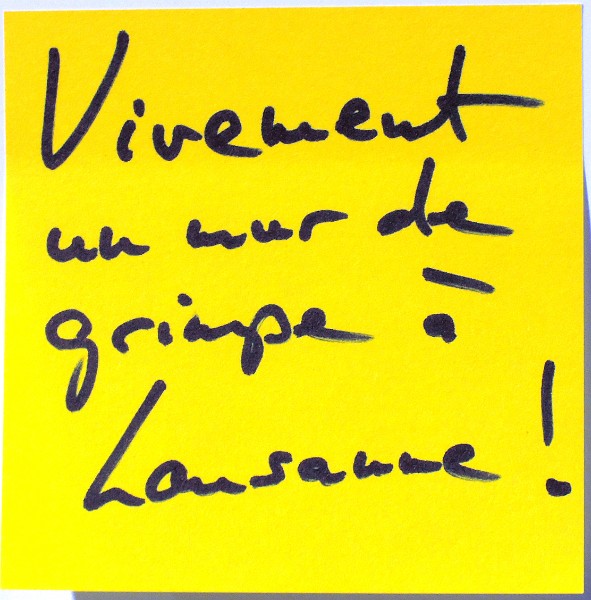 Vivement
un mur de
grimpe à
Lausanne !